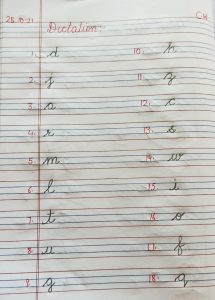 28.10.21 C.W
Dictation:
1. d 10. h
2. j 11. z
3. a 12. c
4. r 13. s
5. m 14. w
6. l 15. i
7. t 16. o
8. u 17. f
9. g 18. q